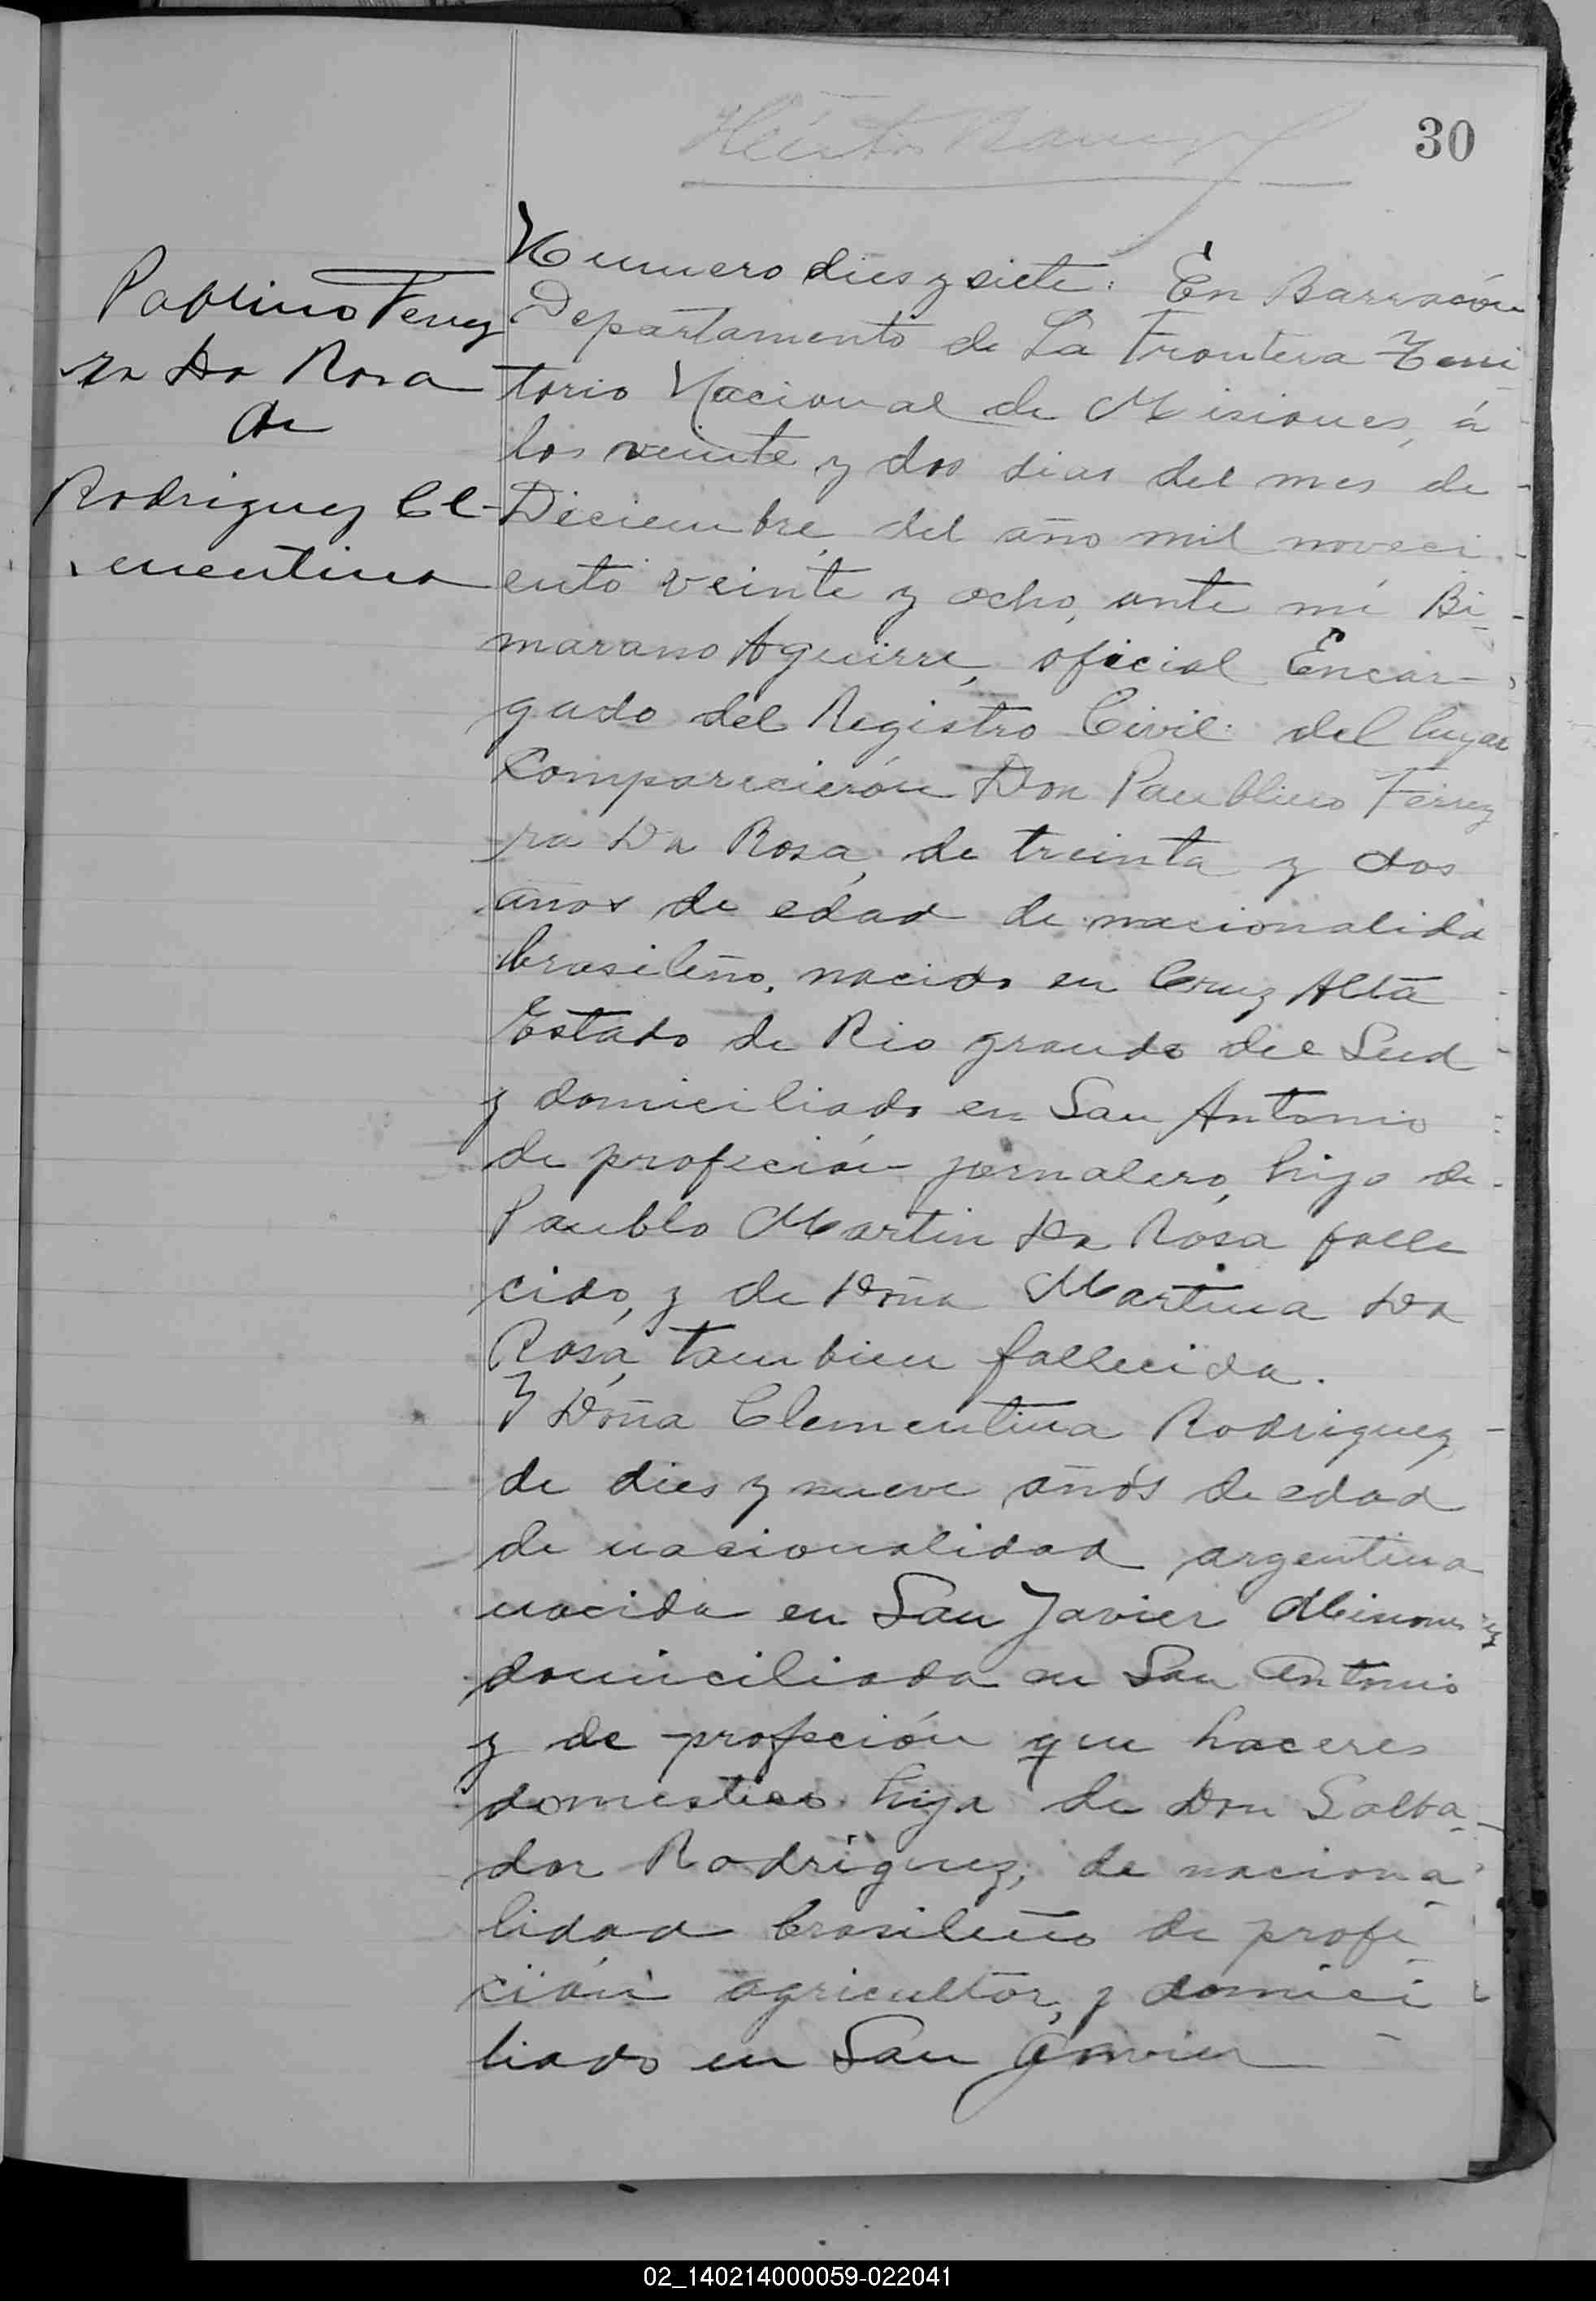 30
Pablino Ferrey
ra Da Rosa
de
Rodriguez Cl-
ementina
Numero dies y siete: En Barracón
Departamento de La Frontera Terri
torio Nacional de Misiones, á
los veinte y dos dias del mes de
Diciembre, del año mil noveci
ento veinte y ocho, ante mi Bi-
marano Aguirre, oficial Encar-
gado del Registro Civil: del lugar
Comparecierón Don Paublino Ferrey
ra Da Rosa, de treinta y dos
años de edad de nacionalida
brasileño, nacido en Cruz Alta
Estado de Rio grande del Sud
y domiciliado en San Antonio
de profeción jornalero, hijo de
Paublo Martin Da Rosa falle
cido, y de Doña Martina Da
Rosa, tambien fallecida.
Y Doña Clementina Rodriguez,
de dies y nueve años de edad
de nacionalidad argentina
nacida en San Javier Misiones y
domiciliada en San Antonio
y de profeción que haceres
domestico hija de Don Salba-
dor Rodriguez, de naciona
lidad brasileño de profe
ción agricultor, y domici
liado en San Javier
02_140214000059-022041